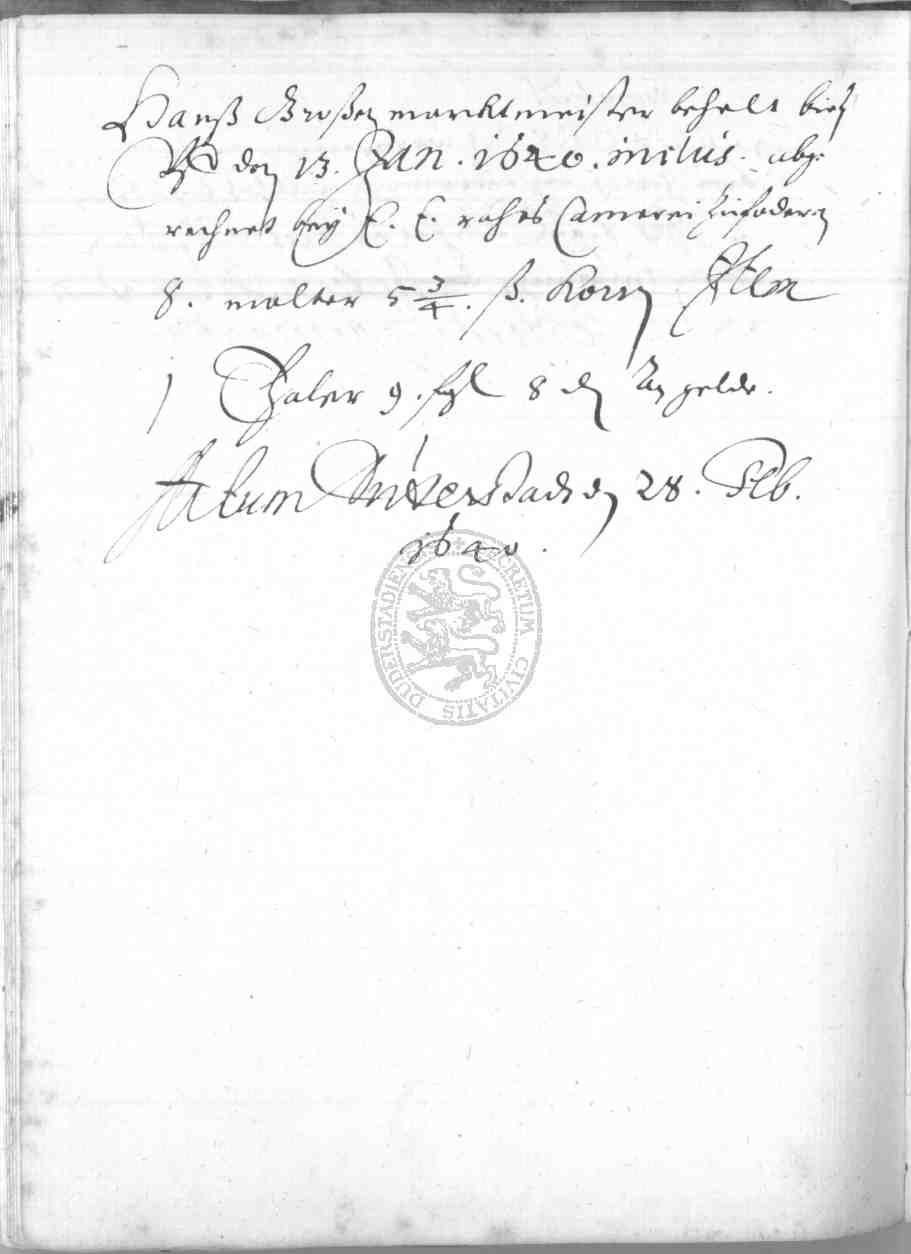 Hanß Großen marcktmeister behelt bieß
Vf den 13. Jan. 1640. inclus. abge
rechnet bey E. E. rahts Camerei zufodern
8. malter 5 3/4. ß. Korn Item
1 Thaler 9. sgl 8 d An gelde.
Actum Duderstadt den 28. Feb.
1640.
SECRETUM CIVITATIS DUDERSTADIENS